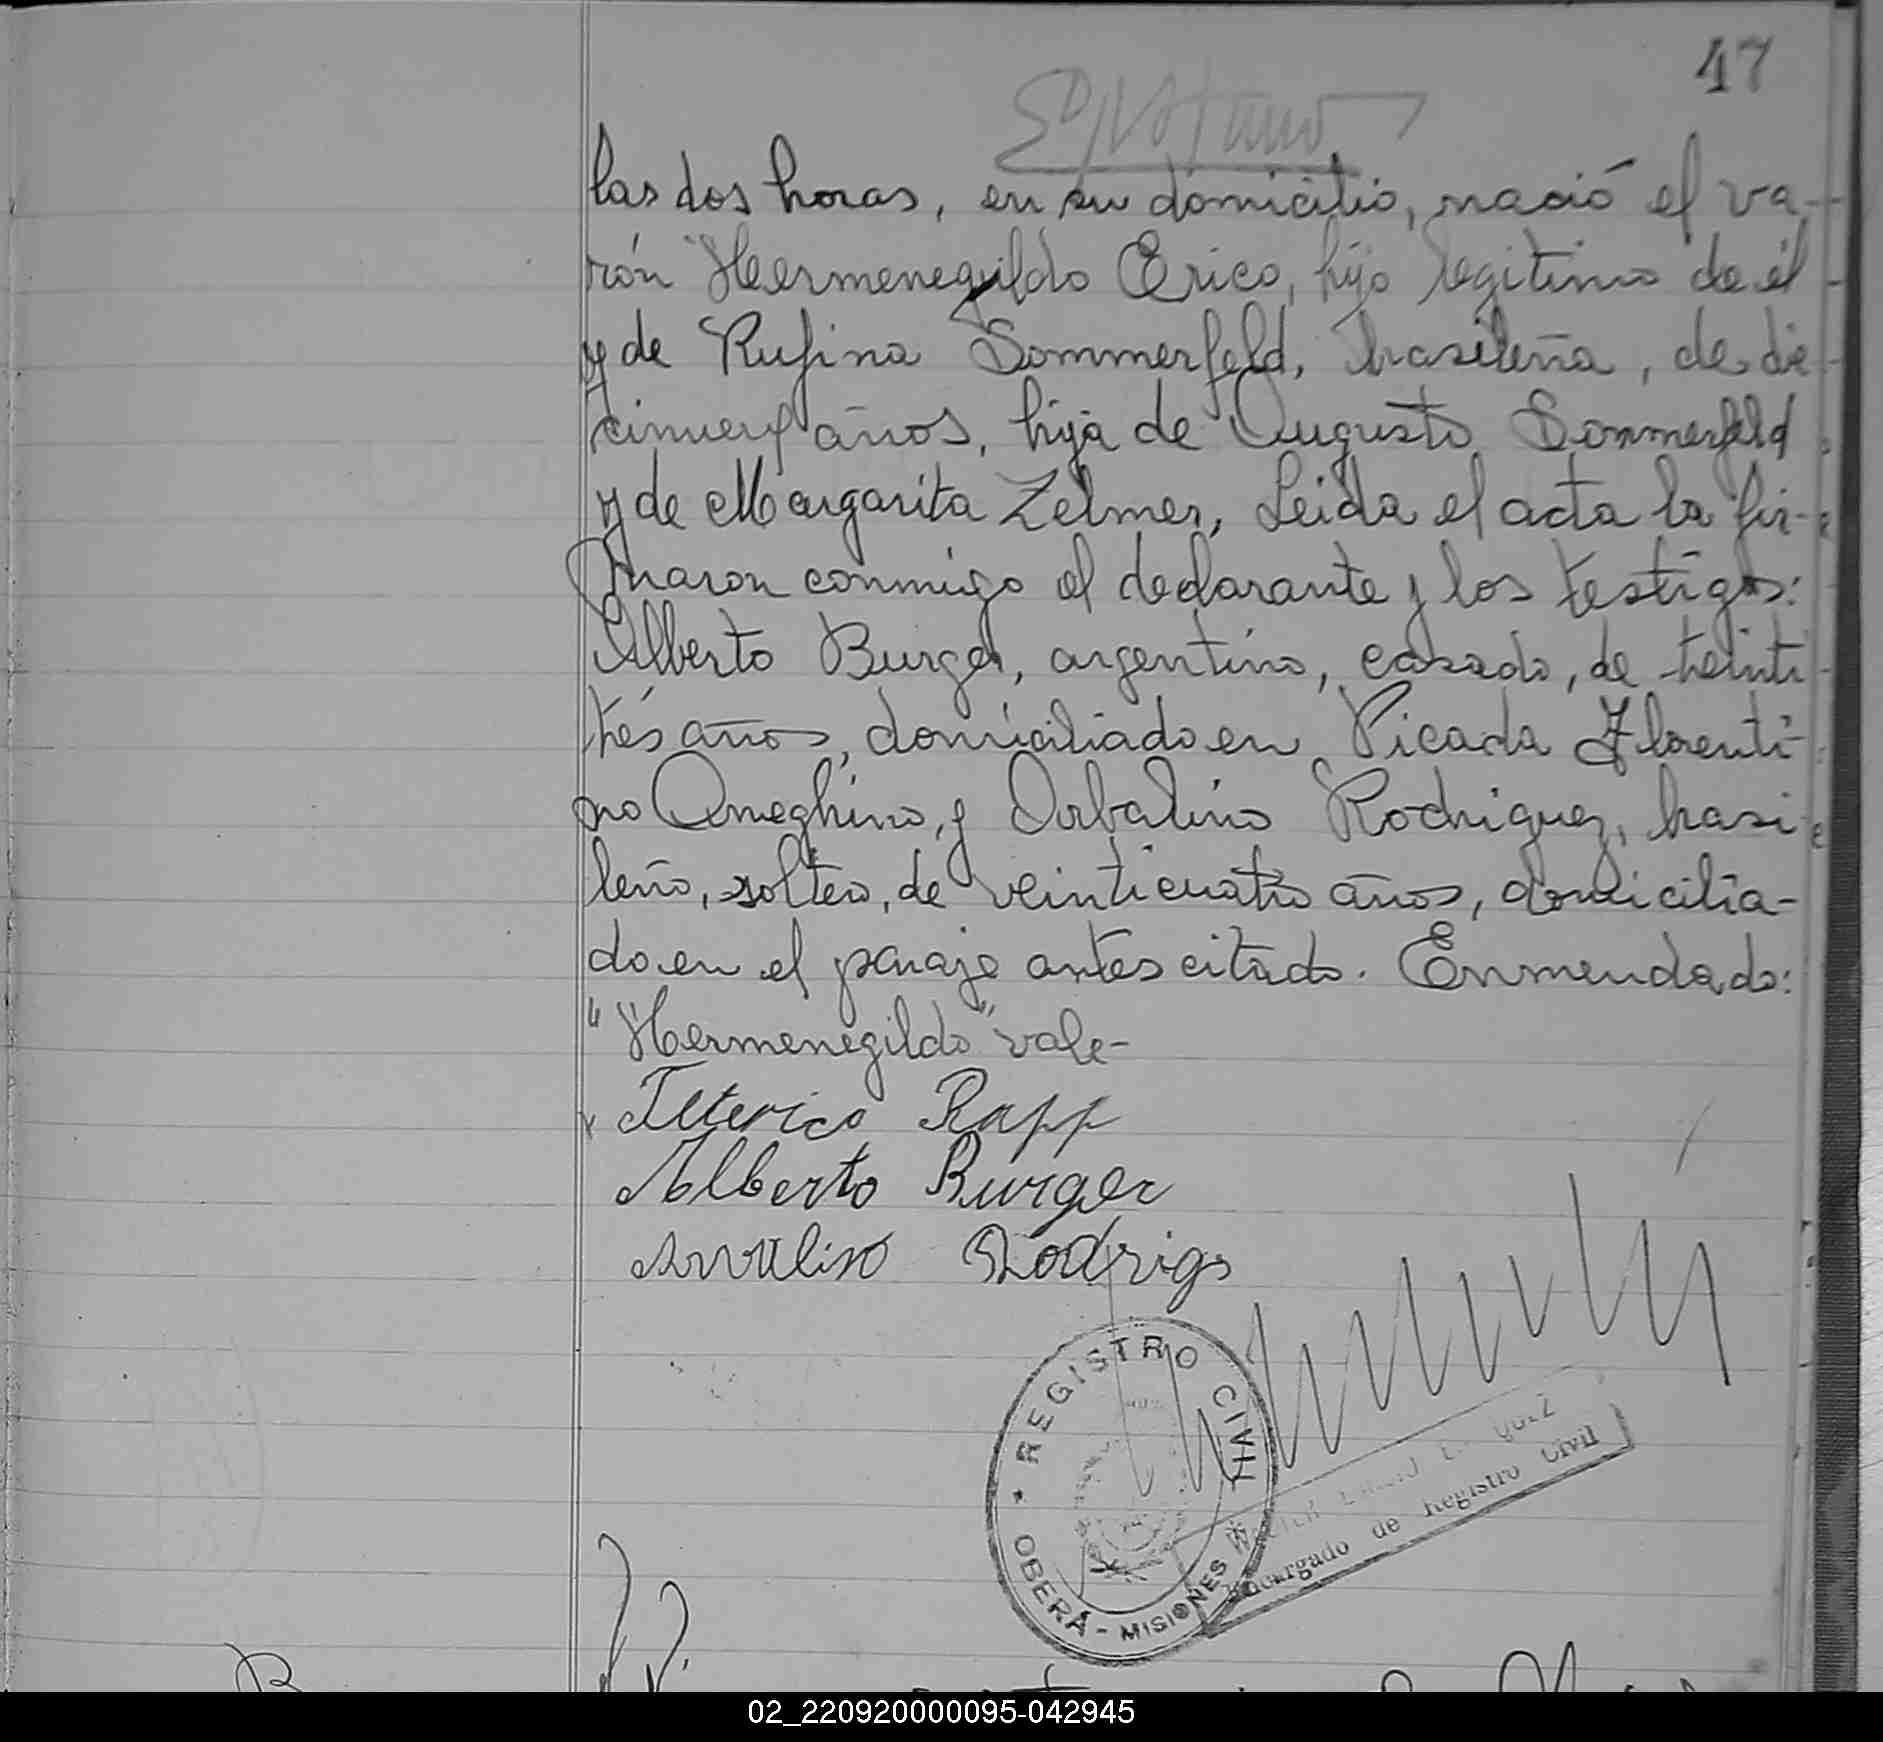 47
las dos horas, en su domicilio, nació el va-
rón "Hermenegildo Erico, hijo legitimo de él
y de Rufina Sommerfeld, brasileña, de die
cinueve años, hija de Augusto Sommerfeld
y de Margarita Zelmer, Leida el acta la fir-
maron conmigo el declarante y los testigos:
Alberto Burger, argentino, casado, de treinti
trés años, domiciliado en Picada Florenti-
no Ameghino, y Orbalino Rodriguez, brasi
leño, soltero, de veinticuatro años, domicilia-
do en el paraje antes citado. Enmendado:
"Hermenegildo" vale-
Feterico Rapp
Alberto Burger
Rodrigs
REGISTRO CIVIL
OBERÁ - MISIONES
Encargado de Registro Civil
02_220920000095-042945